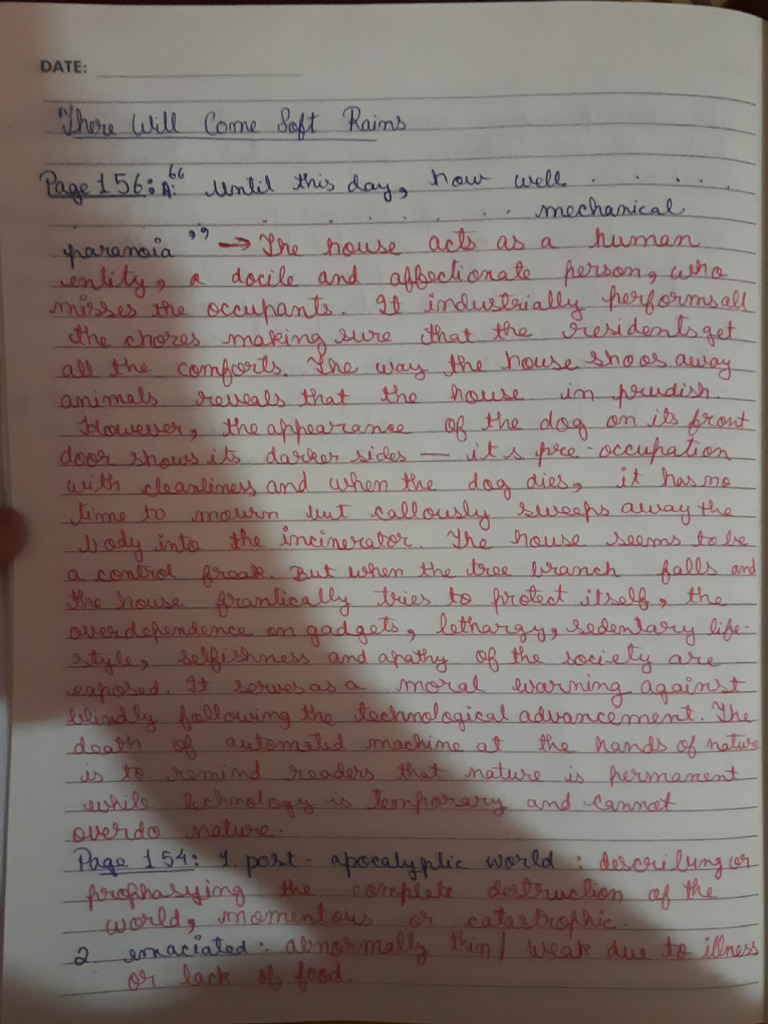 DATE:
There Will Come Soft Rains
Page 156: A: "Until this day, how well . . . . .
. . . . . . . . . mechanical
paranoia" → The house acts as a human
entity, a docile and affectionate person, who
misses the occupants. It industrially performs all
the chores making sure that the residents get
all the comforts. The way the house shoos away
animals reveals that the house in prudish.
However, the appearance of the dog on its front
door shows its darker sides — it's pre-occupation
with cleanliness and when the dog dies, it has no
time to mourn but callously sweeps away the
body into the incinerator. The house seems to be
a control freak. But when the tree branch falls and
the house frantically tries to protect itself, the
overdependence on gadgets, lethargy, sedentary life-
style, selfishness and apathy of the society are
exposed. It serves as a moral warning against
blindly following the technological advancement. The
death of automated machine at the hands of nature
is to remind readers that nature is permanent
while technology is temporary and cannot
overdo nature.
Page 154: 1. post-apocalyptic world: describing or
prophasying the complete destruction of the
world, momentous or catastrophic.
2 emaciated: abnormally thin/ weak due to illness
or lack of food.